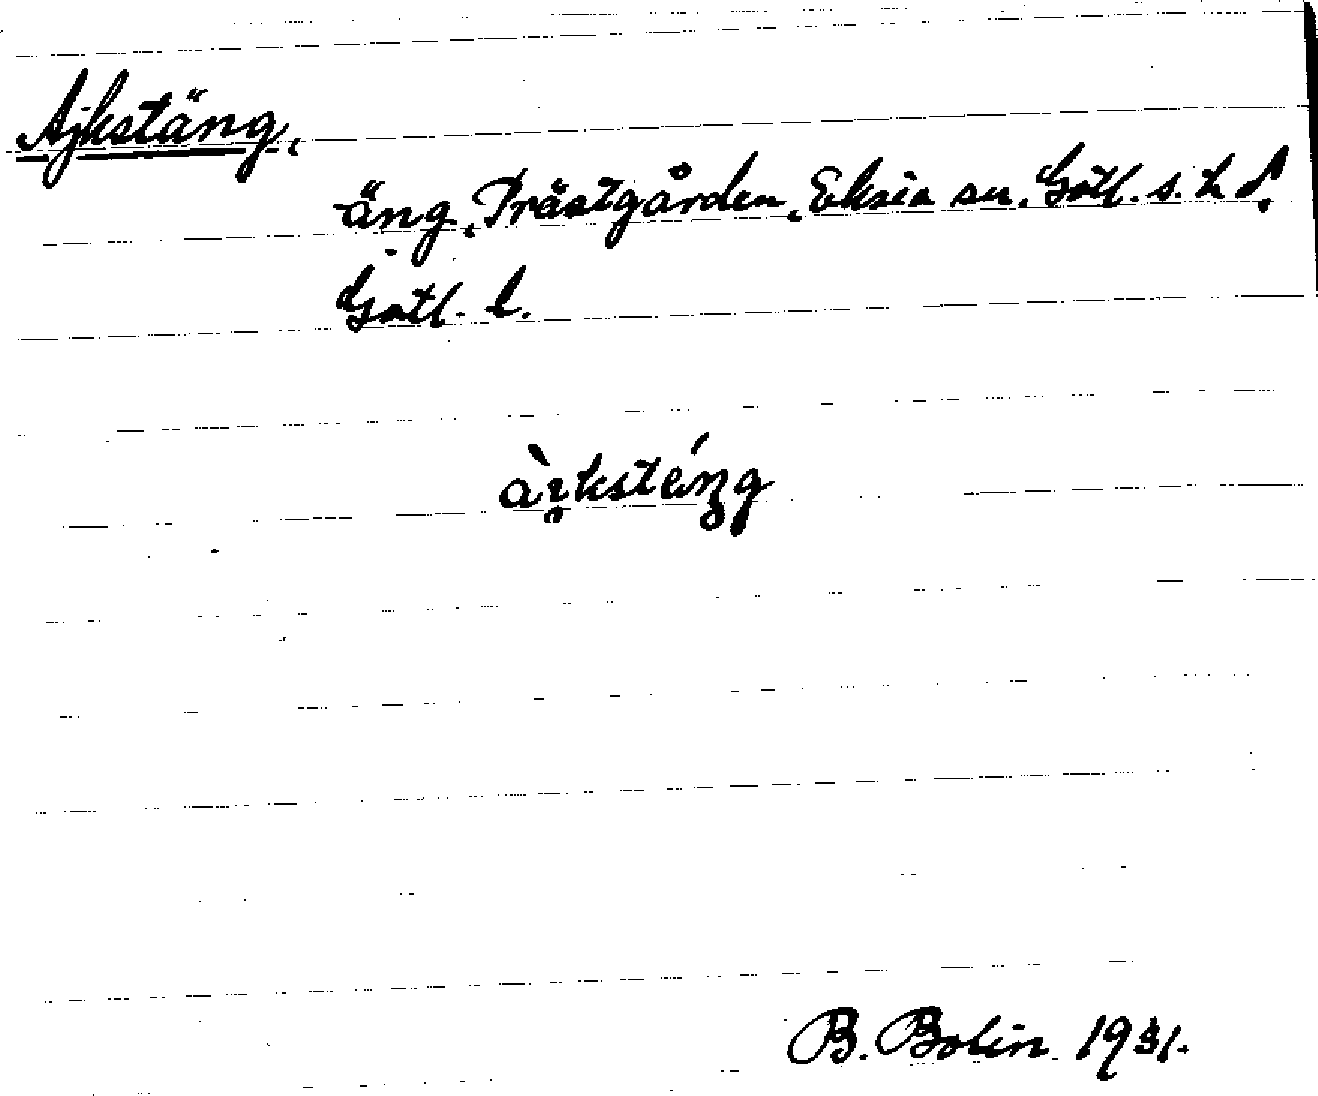 Ajkstäng,
äng, Prästgården, Eksta sn. Gotl. s. h d.
Gotl. l.
ài̯ksténg
B. Bolin 1931.